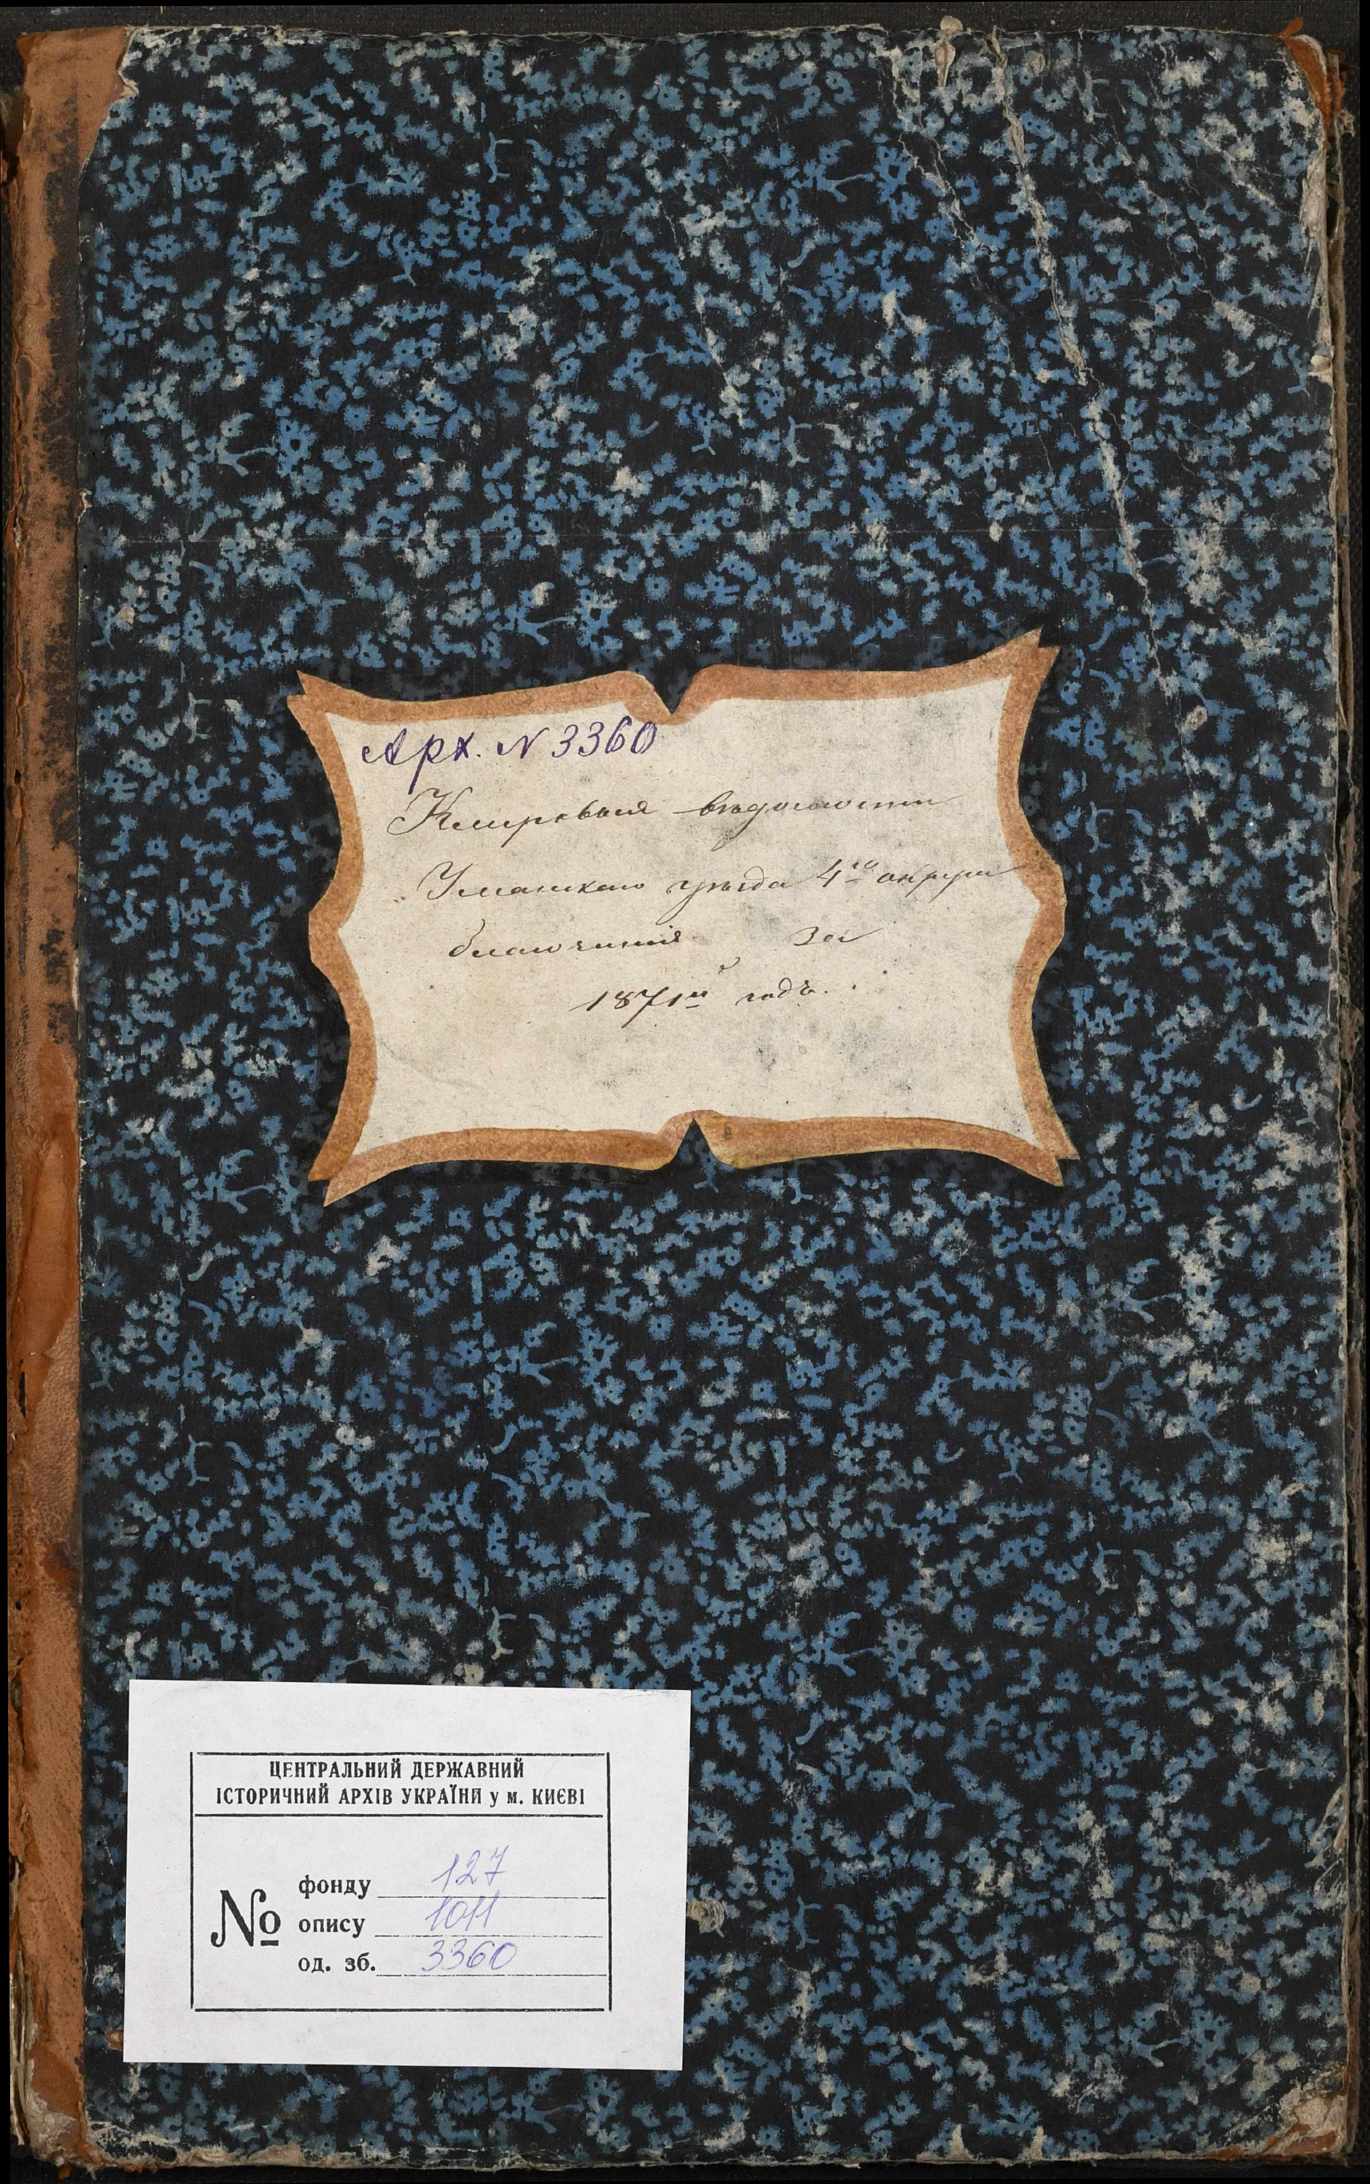 Арх. N 3360
Клировыя вѣдомости
Уманскаго уѣзда 4го округа
благочинія за
1871й годъ.
ЦЕНТРАЛЬНИЙ ДЕРЖАВНИЙ
ІСТОРИЧНИЙ АРХІВ УКРАЇНИ у м. КИЄВІ
№
фонду 127
опису 1011
од. зб. 3360